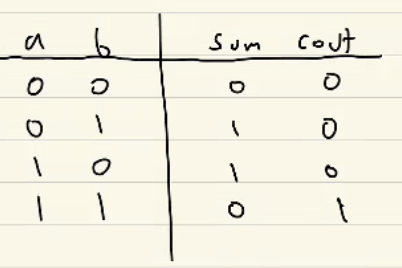 a b sum cout
0 0 0 0
0 1 1 0
1 0 1 0
1 1 0 1